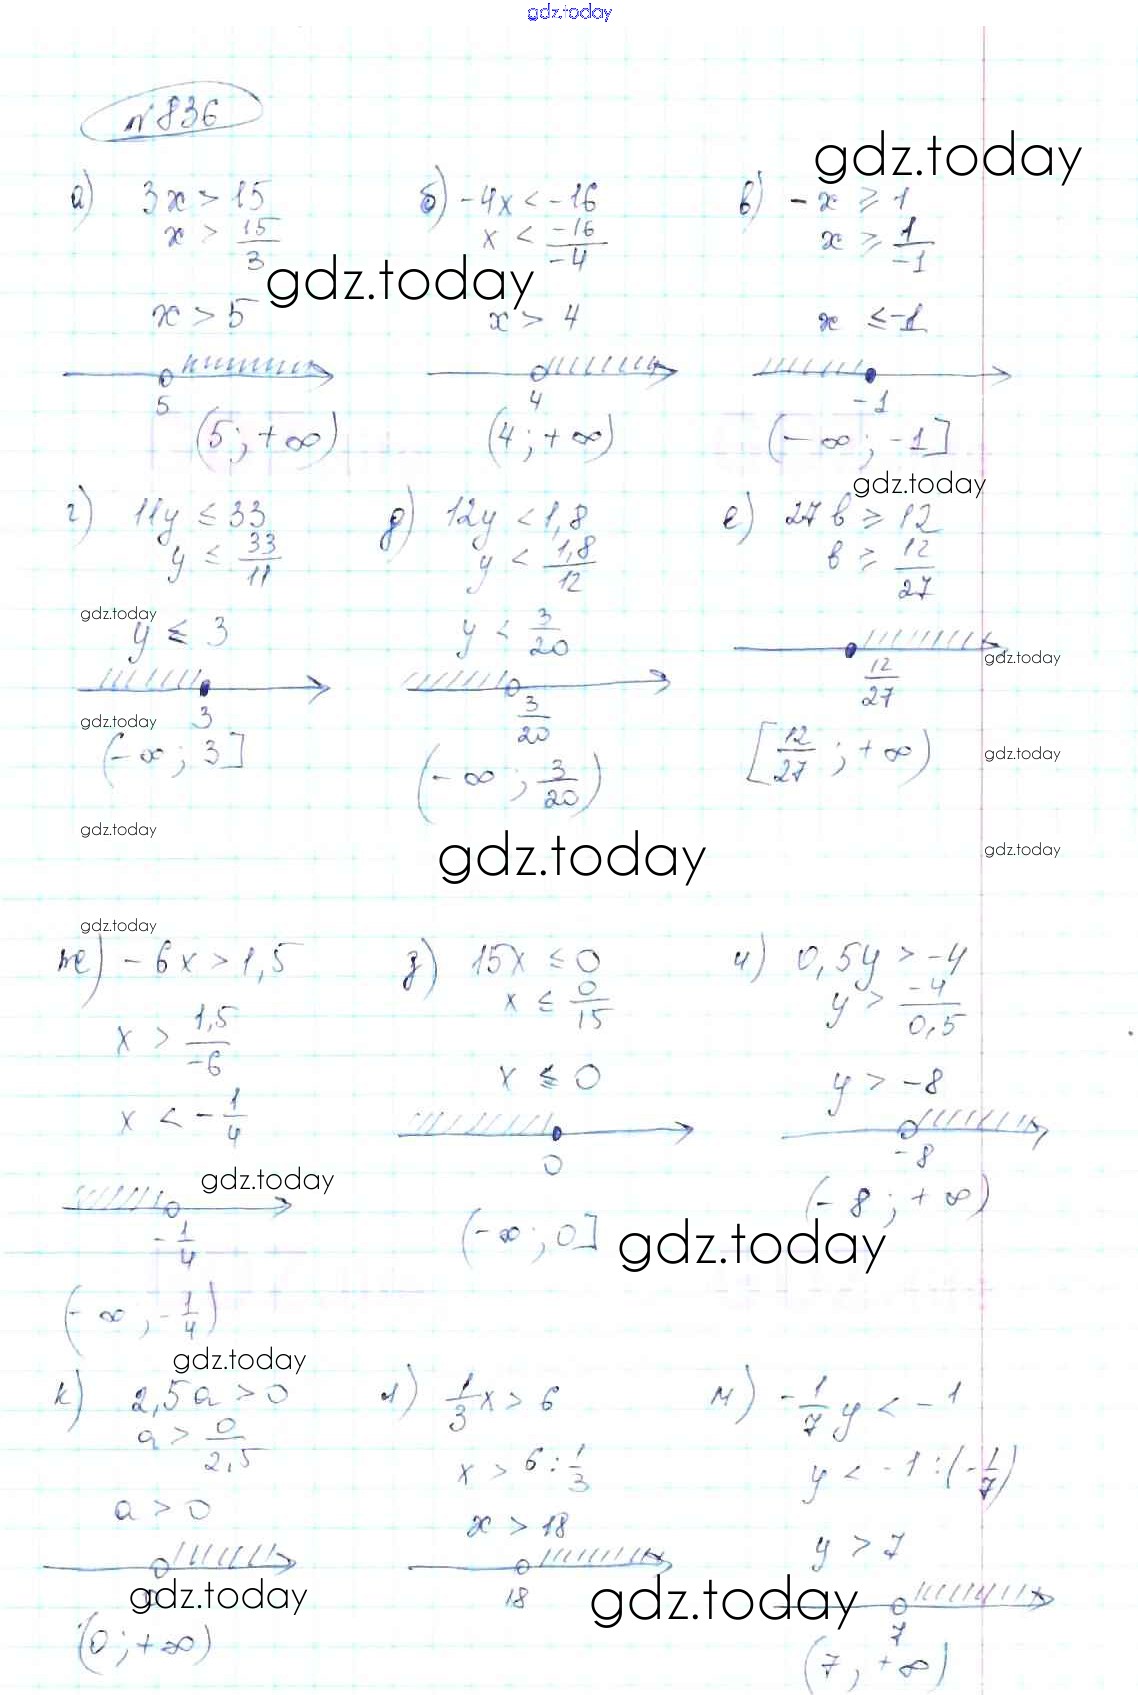 gdz.today
№836
gdz.today
а) 3x > 15
x > 15/3
x > 5
5
(5; +∞)
б) -4x < -16
x < -16/-4
gdz.today
x > 4
4
(4; +∞)
в) -x ⩾ 1
x ⩾ 1/-1
x ≤ -1
-1
(-∞; -1]
gdz.today
г) 11y ≤ 33
y ≤ 33/11
gdz.today
y ≤ 3
3
gdz.today
(-∞; 3]
gdz.today
д) 12y < 1,8
y < 1,8/12
y < 3/20
3/20
(-∞; 3/20)
gdz.today
е) 27в ⩾ 12
в ⩾ 12/27
gdz.today
12/27
[12/27; +∞)
gdz.today
gdz.today
gdz.today
ж) -6x > 1,5
x > 1,5/-6
x < -1/4
gdz.today
-1/4
(-∞; -1/4)
gdz.today
з) 15x ≤ 0
x ≤ 0/15
x ≤ 0
0
(-∞; 0]
gdz.today
и) 0,5y > -4
y > -4/0,5
y > -8
-8
(-8; +∞)
к) 2,5a > 0
a > 0/2,5
a > 0
0
gdz.today
(0; +∞)
л) 1/3x > 6
x > 6 : 1/3
x > 18
18
gdz.today
м) -1/7y < -1
y < -1 : (-1/7)
y > 7
7
(7; +∞)